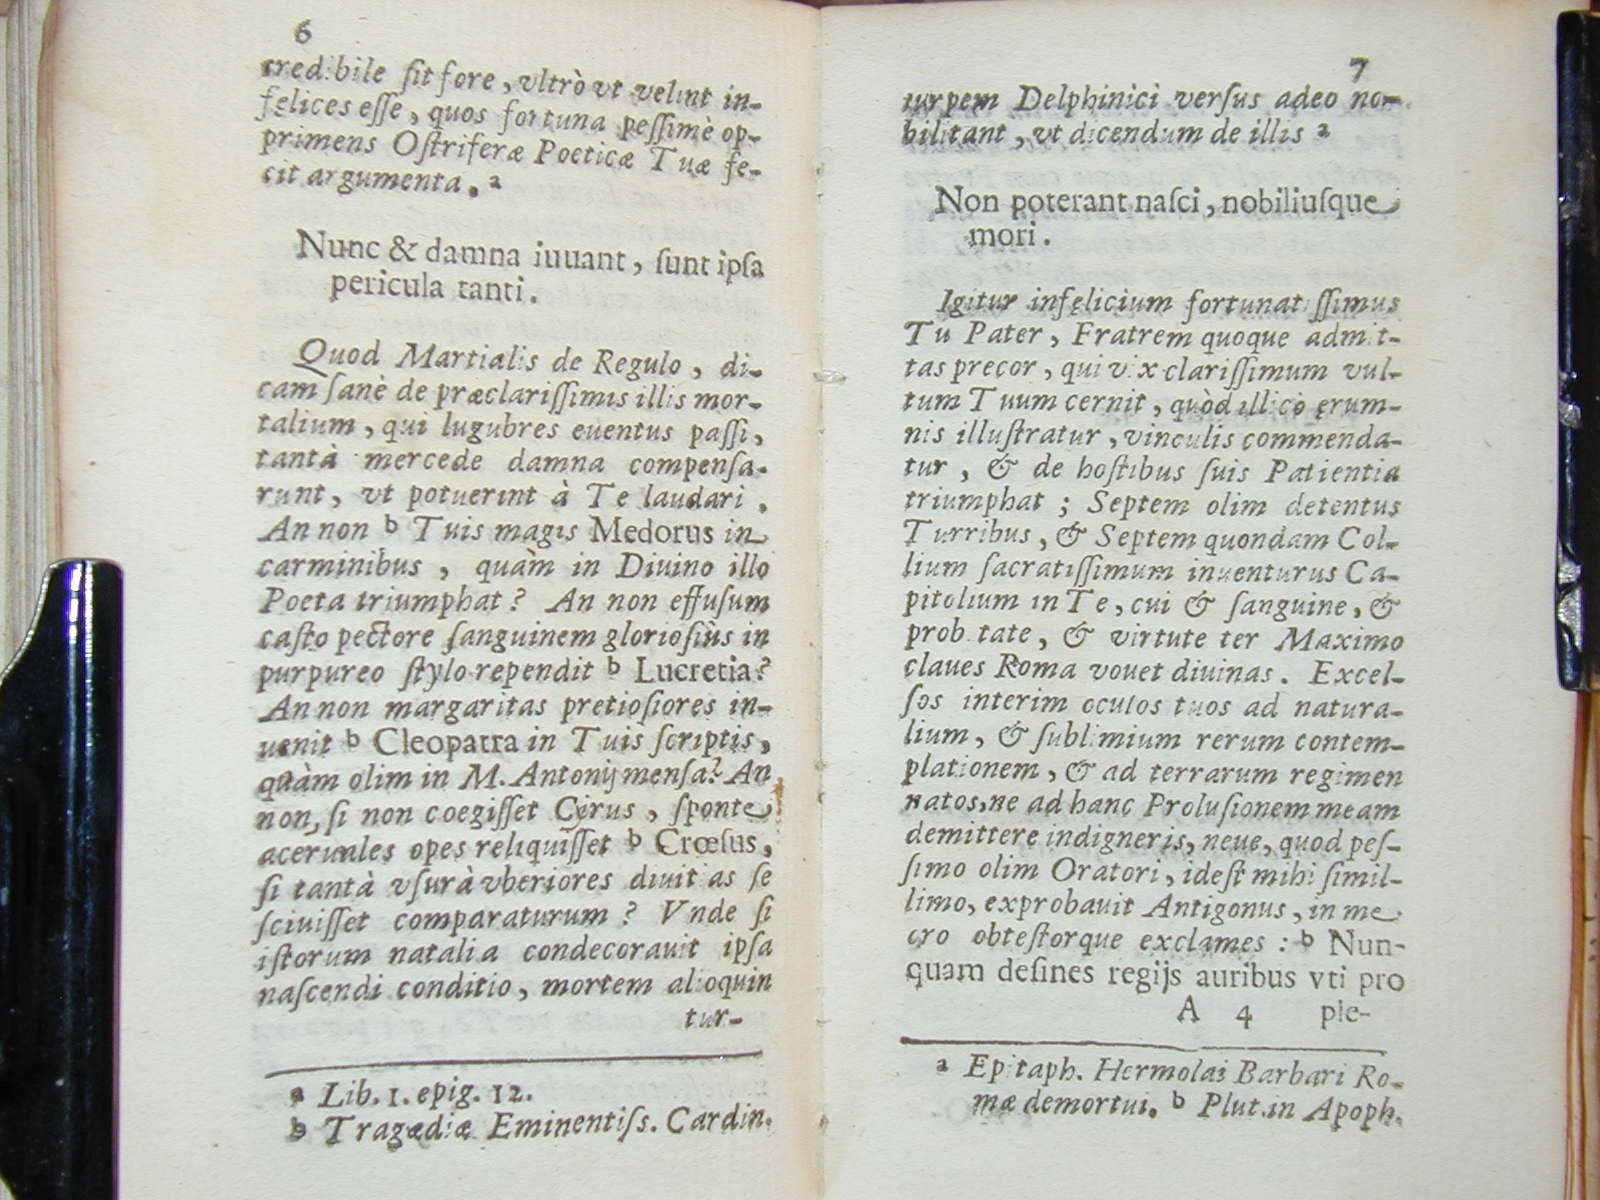 6
credibile ſit fore, vltrò vt velint in-
fęlices eſſe, quos fortuna peſſimè op-
primens Oſtriferæ Poeticæ Tuæ fe-
cit argumenta. a
Nunc & damna iuuant, ſunt ipſa
pericula tanti.
Quod Martialis de Regulo, di-
cam ſanè de præclariſſimis illis mor-
talium, qui lugubres euentus paſſi,
tantà mercede damna compenſa-
runt, vt potuerint à Te laudari.
An non b Tuis magis Medorus in
carminibus, quàm in Diuino illo
Poeta triumphat? An non effuſum
caſto pectore ſanguinem glorioſiùs in
purpureo ſtylo rependit b Lucretia?
An non margaritas pretioſiores in-
uenit b Cleopatra in Tuis ſcriptis,
quàm olim in M. Antonij menſa? An
non, ſi non coegiſſet Cyrus, ſponte
aceruales opes reliquiſſet b Crœſus,
ſi tantà vſurà vberiores diuitias ſe
ſciuiſſet comparaturum? Vnde ſi
iſtorum natalia condecorauit ipſa
naſcendi conditio, mortem alioquin
tur-
a Lib. 1. epig. 12.
b Tragædiæ Eminentiſs. Cardin.
7
turpem Delphinici verſus adeo no-
bilitant, vt dicendum de illis a
Non poterant naſci, nobiliuſque
mori.
Igitur infęlicium fortunatiſſimus
Tu Pater, Fratrem quoque admit-
tas precor, qui vix clariſſimum vul-
tum Tuum cernit, quòd illicò ęrum-
nis illuſtratur, vinculis commenda-
tur, & de hoſtibus ſuis Patientia
triumphat; Septem olim detentus
Turribus, & Septem quondam Col-
lium ſacratiſſimum inuenturus Ca-
pitolium in Te, cui & ſanguine, &
probitate, & virtute ter Maximo
claues Roma vouet diuinas. Excel-
ſos interim oculos tuos ad natura-
lium, & ſublimium rerum contem-
plationem, & ad terrarum regimen
natos, ne ad hanc Proluſionem meam
demittere indigneris, neue, quod peſ-
ſimo olim Oratori, ideſt mihi ſimil-
limo, exprobauit Antigonus, in me
cro obteſtorque exclames: b Nun-
quam deſines regijs auribus vti pro
A 4 ple-
a Epitaph. Hermolai Barbari Ro-
mæ demortui. b Plut. in Apoph.